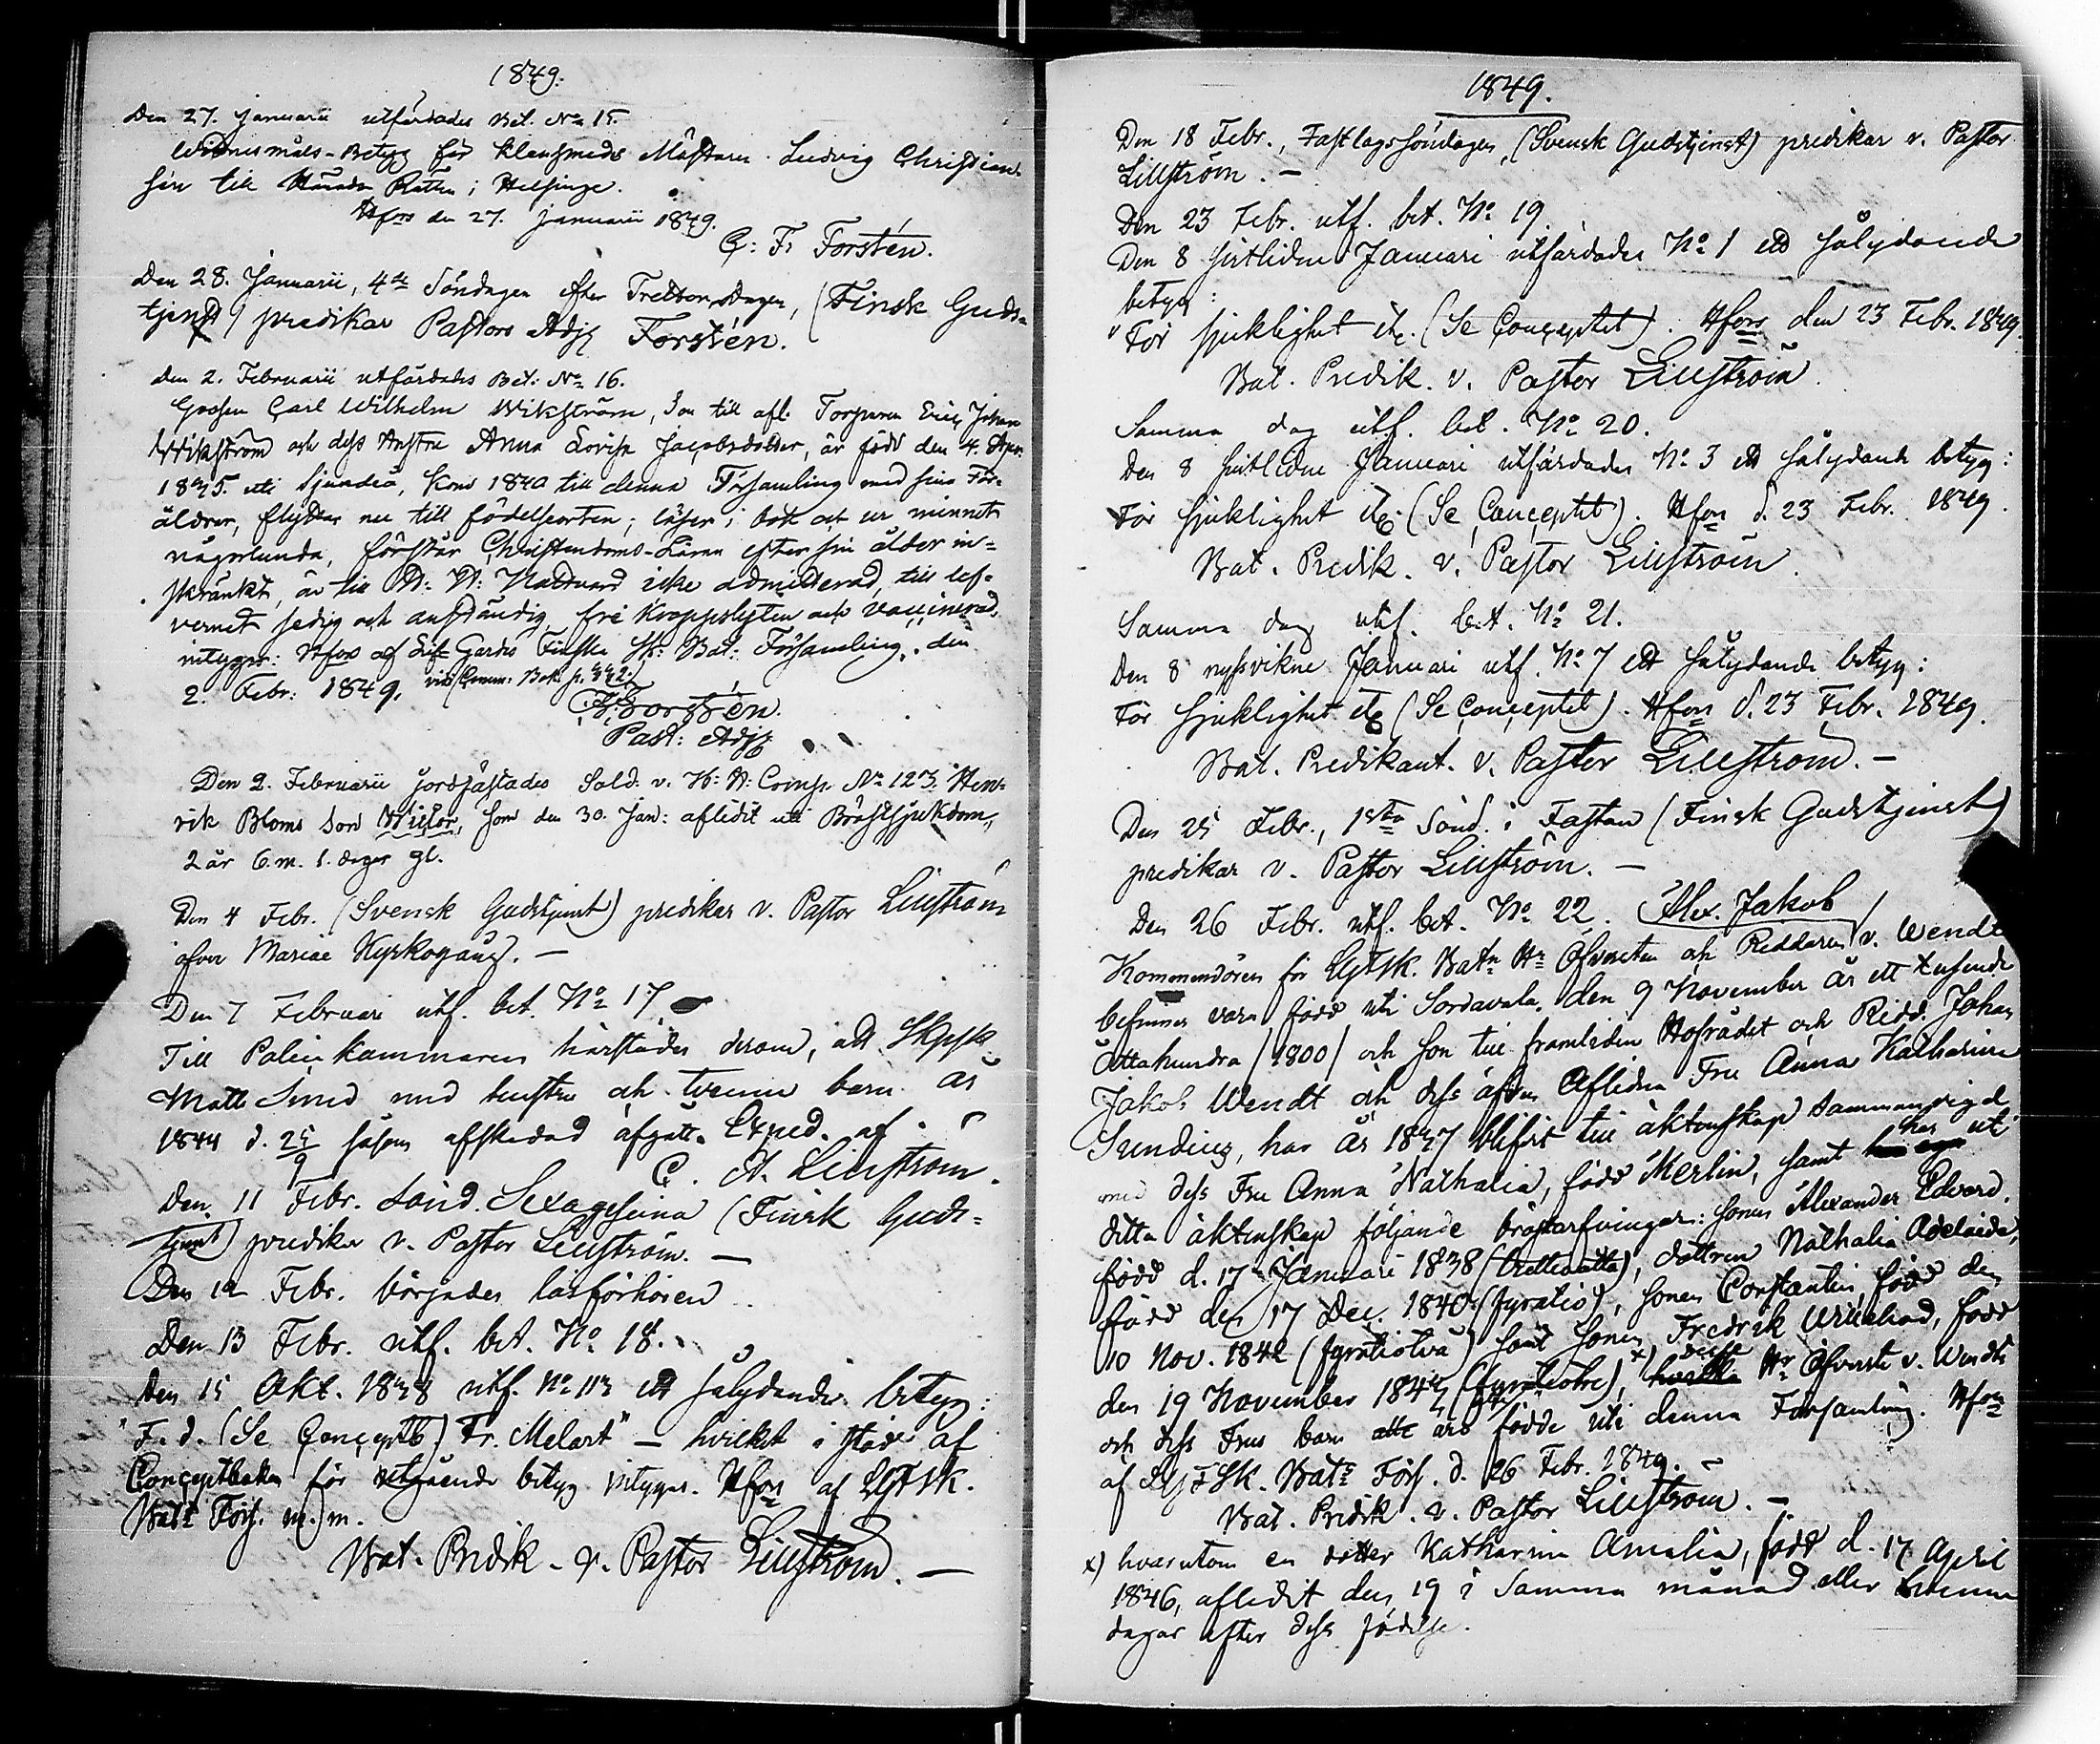 1849.
Den 27. Januarii utfärdades Bet. No 15.
Witnesmåls-Betyg för Klensmeds Mästaren Ludvig Christian
sin till Härads Rätten i Helsinge.
Hfors den 27. Januarii 1849.
C: F: Forstén.
Den 28. Januarii, 4de Söndagen efter Tretton Dagen, (Finsk Guds-
tjenst) predikar Pastors Adj Forstén.
den 2. Februarii utfärdades Bet: No 16.
Gossen Carl Wilhelm Wikström, Son till afl. Torparen Eric Johan
Wikström och dess Hustru Anna Lovisa Jacobsdotter, är född den 4. Apr.
1835. uti Sjundeå, kom 1840 till denna Församling med sina För-
äldrar, flyttar nu till födelseorten; läser i bok och ur minnet
någorlunda, förstår Christendoms-Läran efter sin ålder in-
skränkt, är till H: H: Nattvard icke admitterad, till lef-
vernet sedig och anständig, fri kroppslyten och vaccinerad,
intygar: Hfors af Lif Gardes Finska Sk: Bat: Församling, den
2. Febr: 1849. vid Comm: Bok p. 442.
C. F. Forstén.
Past: Adj
Den 2. Februarii jordfästades Sold. v. H: H: Comp. No 123. Hen-
rik Bloms Son Victor, som den 30. Jan: aflidit uti Bröstsjukdom,
2 år 6. m. 1. dagar gl.
Den 4 Febr. (Svensk Gudstjenst) predikar v. Pastor Lillström
öfver Mariae Kyrkogång. —
Den 7 Februari utf. bet. No 17.
Till Poliskammaren härstädes derom, att
Matts Smed med hustru och tvenne barn år
1844 d. 25/9 såsom afskedad afgått. Exped. af
C. A. Lillström.
Den 11 Febr. Sönd. Sexagesima (Finsk Guds-
tjenst) predikar v. Pastor Lillström. —
Den 12 Febr. börjades läsförhören
Den 13 Febr. utf. bet. No 18.
Den 15 Okt. 1838 utf. No 113 ett sålydande betyg:
"F. d. (Se Conceptb) Fr. Melart" — hvilket i stöd af
Conceptboken för utgående betyg intygas. Hfors af LGFSk.
Bats Förs. m. m.
Bat. Predik. v. Pastor Lillström. —
1849.
Den 18 Febr., Fastlagssöndagen, (Svensk Gudstjenst) predikar v. Pastor
Lillström. —
Den 23 Febr. utf. bet. No 19.
Den 8 sistlidne Januari utfärdades No 1 ett sålydande
betyg:
"För sjuklighet etc. (Se Conceptet). Hfors den 23 Febr. 1849.
Bat. Predik. v. Pastor Lillström.
Samma dag utf. bet. No 20.
Den 8 sistlidne Januari utfärdades No 3 ett sålydande betyg:
För sjuklighet etc. (Se Conceptet). Hfors d. 23 Febr. 1849.
Bat. Predik. v. Pastor Lillström.
Samma dag utf. bet. No 21.
Den 8 nyssvikne Januari utf. No 7 ett sålydande betyg:
För sjuklighet etc (Se Conceptet). Hfors d. 23 Febr. 1849.
Bat. Predikant. v. Pastor Lillström. —
Den 25 Febr., 1sta Sönd. i Fastan (Finsk Gudstjenst)
predikar v. Pastor Lillström. —
Den 26 Febr. utf. bet. No 22. Alex. Jakob
Kommendören för LGFSk. Batn Hr Öfversten och Riddaren v. Wendt
befinnes vara född uti Sordavala, den 9 November år ett tusende
Ottahundra (1800) och son till framledne Hofrådet och Ridd. Johan
Jakob Wendt och dess äfven Aflidna Fru Anna Katharina
Sundius, har år 1837 blifvit till äktenskap sammanvigd
med dess Fru Anna Nathalia, född Merlin, samt har uti
detta äktenskap följande bröstarfvingar: Sonen Alexander Edvard,
född d. 17 Januari 1838 (trettioåtta), dottren Nathalia Adelaide,
född den 17 Dec. 1840 (fyratio), sonen Constantin, född den
10 Nov. 1842 (fyratiotvå) samt sonen Fredrik Wilhelm, född
den 19 November 1843 (fyratiotre), x) desse Hr Öfverste v. Wendts
och dess Frus barn äro födde uti denna Församling. Hfors
af LGFSk. Bats Förs. d. 26 Febr. 1849. —
Bat. Predik. v. Pastor Lillström. —
x) hvarutom en dotter Katharina Amalia, född d. 17 April
1846, aflidit den 19 i samma månad eller tvenne
dagar efter dess födelse.